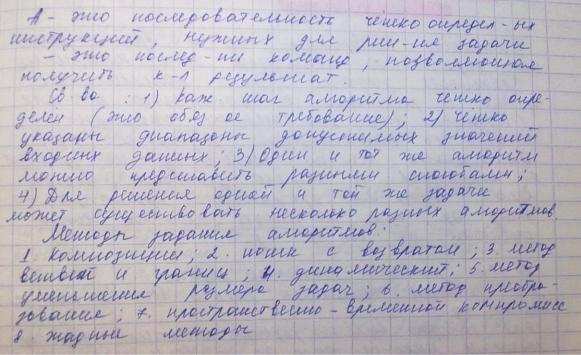 А - это последовательность четко определ-ых
инструкций, нужных для реш-ия задачи
- это послед-ти команд, позволяющая
получить к-л результат.
Св ва: 1) каж. шаг алгоритма четко опре-
делен (это обяз ое требование); 2) четко
указаны диапазоны допустимых значений
входных данных; 3) Один и тот же алгоритм
можно представить разными способами;
4) Для решения одной и той же задачи
может существовать несколько разных алгоритмов.
Методы задания алгоритмов:
1. Композиции; 2. поиск с возвратом; 3. метод
ветвей и границ; 4. динамический; 5. метод
уменьшения размера задач; 6. метод преобра-
зования; 7. пространственно-временной компромисс
8. жадные методы